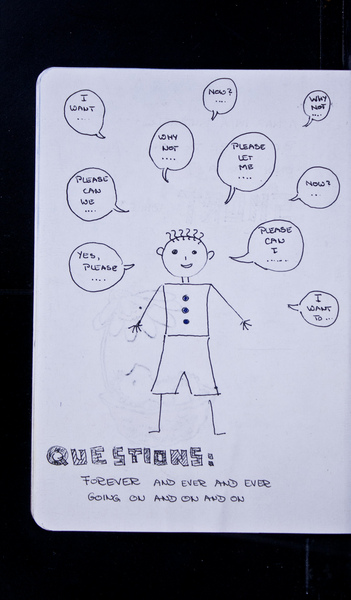 I
WANT
....
NOW?
....
WHY
NOT
....
WHY
NOT
....
PLEASE
LET
ME
....
PLEASE
CAN
WE
....
NOW?
..
YES,
PLEASE
....
PLEASE
CAN
I
.....
I
WANT
TO...
QUESTIONS:
FOREVER AND EVER AND EVER
GOING ON AND ON AND ON